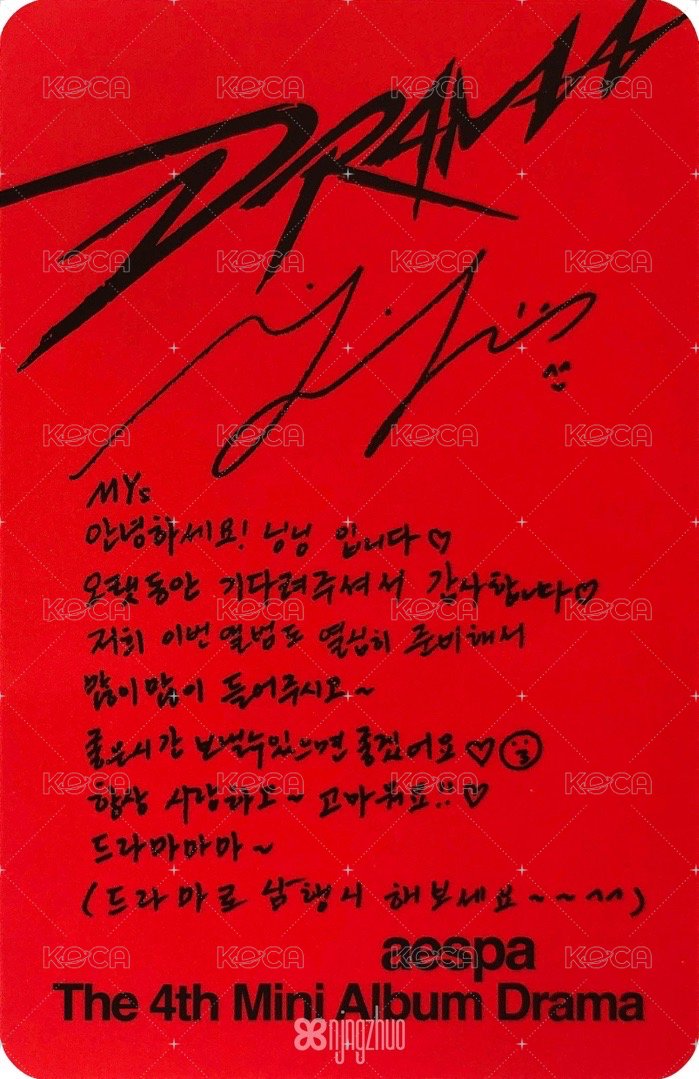 DRAMA
MYs
안녕하세요! 닝닝 입니다♡
오랫동안 기다려주셔서 감사합니다♡
저희 이번 앨범도 열심히 준비해서
많이많이 들어주시오~
좋은시간 보낼수있으면 좋겠어요♡
항상 사랑하고~ 고마워요..♡
드라마마마~
(드라마로 삼행시 해보세요~~^^)
aespa
The 4th Mini Album Drama
njngzhuo
KOCA